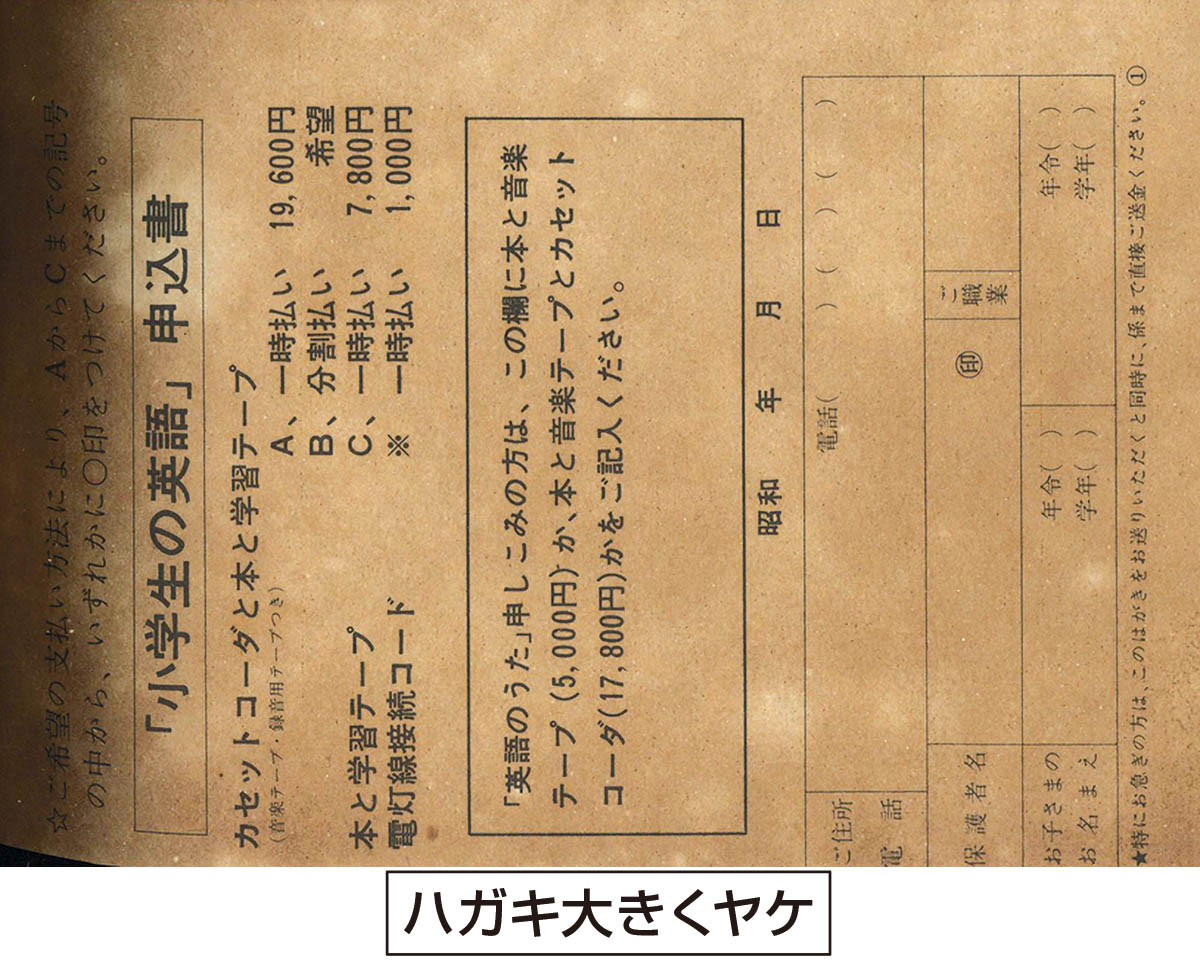 ☆ご希望の支払い方法により、AからCまでの記号
の中から、いずれかに○印をつけてください。
「小学生の英語」申込書
カセットコーダと本と学習テープ
(音楽テープ・録音用テープつき)
A、一時払い 19,600円
B、分割払い 希望
本と学習テープ C、一時払い 7,800円
電灯線接続コード ※ 一時払い 1,000円
「英語のうた」申しこみの方は、この欄に本と音楽
テープ(5,000円)か、本と音楽テープとカセット
コーダ(17,800円)かをご記入ください。
昭和 年 月 日
ご住所
電話 電話( ) ( ) ( )
保護者名 ㊞ ご職業
お子さまの
お名まえ
年令( )
学年( )
年令( )
学年( )
★特にお急ぎの方は、このはがきをお送りいただくと同時に、係まで直接ご送金ください。①
ハガキ大きくヤケ